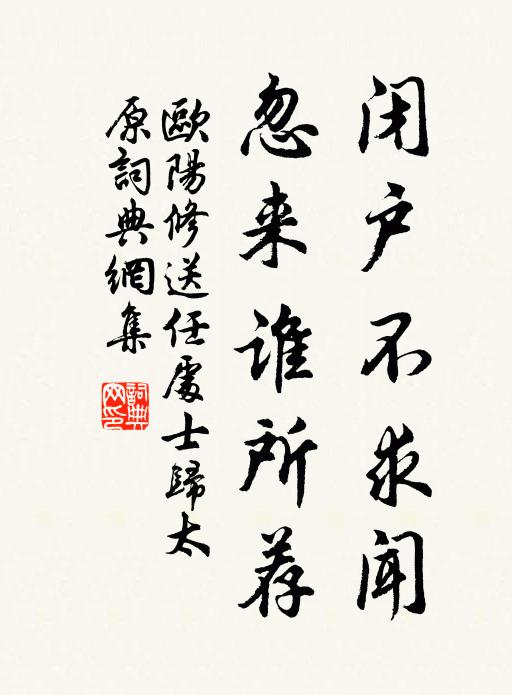 闭户不求闻
忽来谁所荐
歐陽修送任處士歸太
原詞典網集
詞典
网印